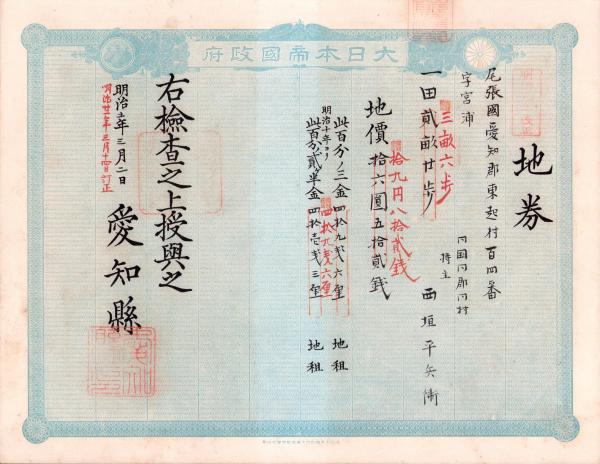 大日本帝國政府
地券
尾張國愛知郡東起村百四番
字宮浦
同国同郡同村
持主 西垣平兵衛
一田貳畝廿歩
三畝六歩
地價拾六圓五拾貳銭
拾九円八拾貳銭
此百分ノ三金四拾九銭六厘 地租
明治十年ヨリ
此百分ノ貳半金四拾壱銭三厘 地租
四拾九銭六厘
右檢査之上授與之
明治十一年三月二日
明治廿一年三月十四日訂正
愛知縣